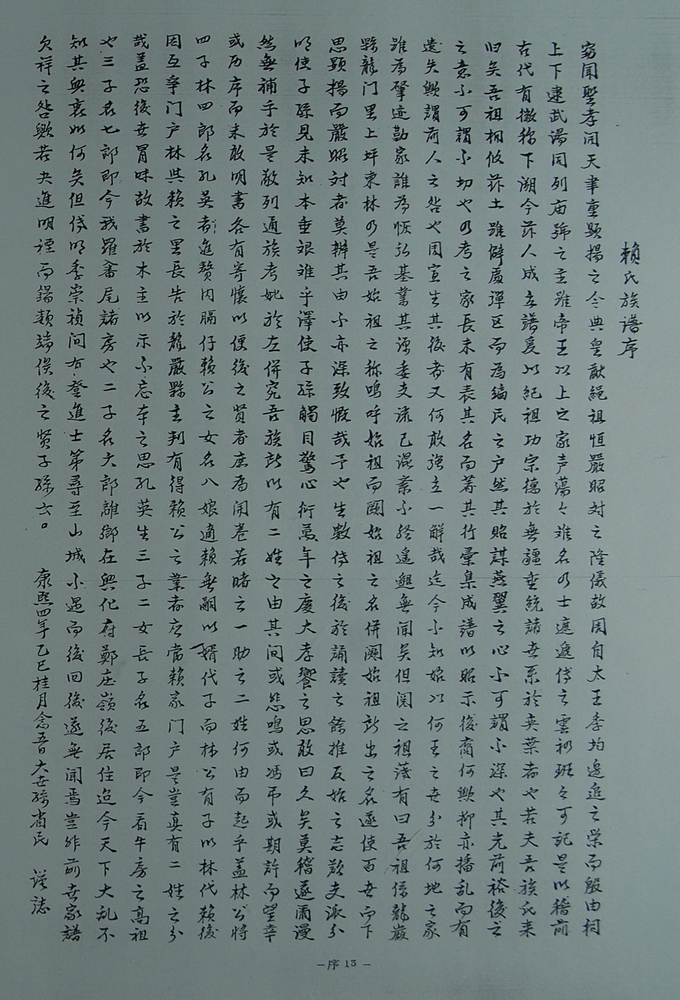 賴氏族譜序
竊聞聖孝開天聿重顯揚之令典皇猷繩祖恒嚴昭对之隆儀故因自太王季均邀追之榮而殷由祠
上下逮武湯同列庙號之主雖帝王以上之家声蕩々难名乃士遮遮傳之雲礽班々可記是以稽前
古代有徽稱下溯今茲人成玄譜爰以紀祖功宗德於無疆垂統諸世系於奕葉者也若夫吾族氏来
旧矣吾祖相攸茲土雖僻處彈区而為編民之户然其貽謀燕翼之心不可謂不深也其光前裕後之
之意不可謂不切也乃考之家長未有表其名而著其行彙集成譜以昭示後裔何歟抑亦播乱而有
遺失歟謂前人之咎也因宣生其後也又何敢强立一解哉迄今不知始以何王之世分於何地之家
誰為肇迹勋家誰為恢弘基業其源委支流已混業不終遙邈無聞矣但閱之祖諱有曰吾祖係龍巖
縣龍门里上坪東林乃是吾始祖之称鳴呼始祖而闕始祖之名併闕始祖所出之名遂使百世而下
思顯揚而嚴昭对者莫辨其由不亦深致慨哉予也生數傳之後於誦讀之餘推反始之志欵支派分
明使子孫見未知本垂艰难乎澤使子孫觸目驚心衍萬年之慶大孝饗之思敢曰久矣莫稽遂爾漫
然無補乎於是敢列通族考妣於左併究吾族所以有二姓之由其间或悲鳴或馮弔或期許而望幸
或历序而未敢明書各有寄懷以便後之賢者庶為闲卷若睹之一助之二姓何由而起乎蓋林公将
四子林四郎名孔英者進贅内膈仔賴公之女名八娘適賴無嗣以婿代子而林公有子以林代賴後
因互争门户林與賴之里長告於龍巖縣主判有得賴公之業者应當賴家门户是豈真有二姓之分
哉盖恐後世冒昧故書於木主以示不忘本之思孔英生三子二女長子名五郎即今看牛房之高祖
也三子名七郎即今我羅畬尾諸房也二子名大郎離鄉在興化府鄭庄嶺後居住迨今天下大乱不
知其興衰如何矣但傳明季崇禎间有登進士第尋至山城不遇而後回後遂無闻焉豈非前世家譜
欠祥之咎歟若夫進明禋而錫類端俟後之賢子孫云。 康熙四年乙巳桂月禽吾大世孫省民 谨誌
－序 13－